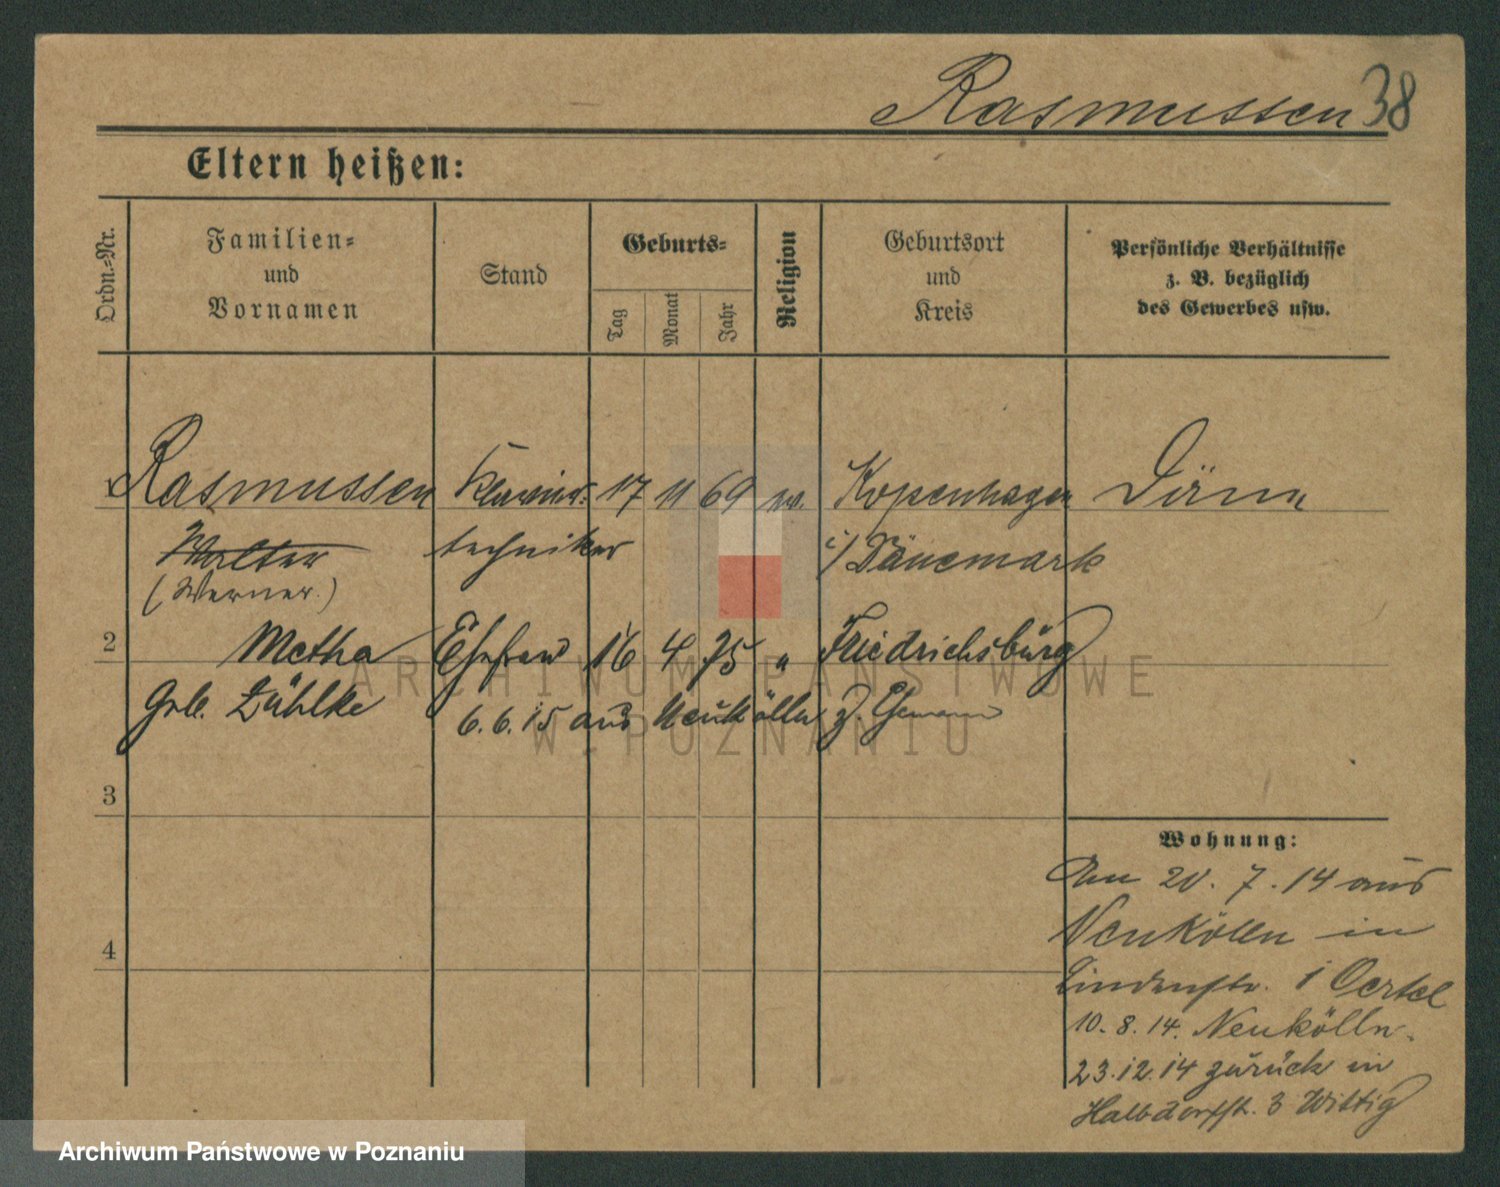 Rasmussen 38
Eltern heißen:
Ordn.-Nr.
Familien-
und
Vornamen
Stand
Geburts-
Tag
Monat
Jahr
Religion
Geburtsort
und
Kreis
Persönliche Verhältnisse
z. B. bezüglich
des Gewerbes usw.
1 Rasmussen Klavier- 17 11 69 ev. Kopenhagen Däne
Walter techniker i/Dänemark
(Werner.)
2 Metha Ehefrau 16 4 75 " Friedrichsburg
Geb. Lühlke 6.6.15 aus Neukölln z.
3
4
Wohnung:
Am 20.7.14 aus
Neukölln in
Lindenstr. 1 Oertel
10.8.14. Neukölln.
23.12.14 zurück in
Halbdorfstr. 3 Wittig
ARCHIWUM PAŃSTWOWE
W POZNANIU
Archiwum Państwowe w Poznaniu